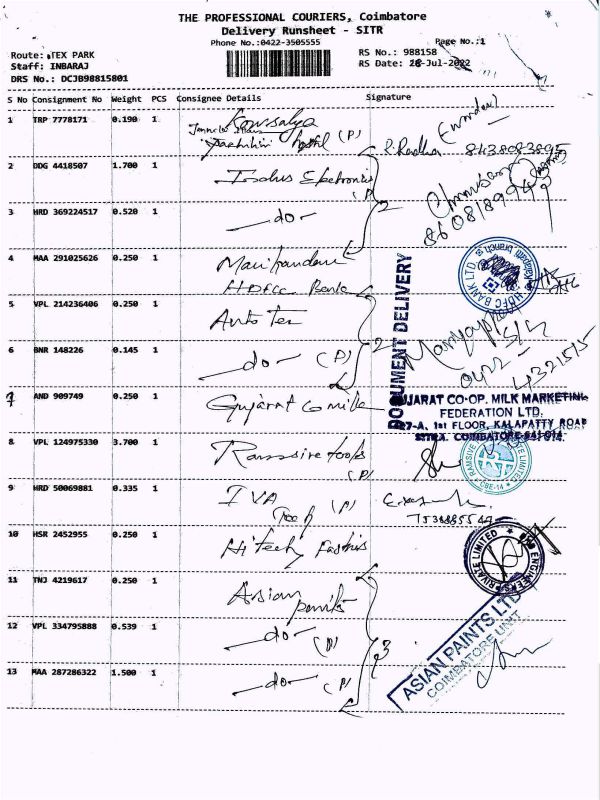 THE PROFESSIONAL COURIERS, Coimbatore
Delivery Runsheet - SITR
Phone No.:0422-3505555
Page No.:1
Route: TEX PARK
RS No.: 988158
Staff: INBARAJ
RS Date: 28-Jul-2022
DRS No.: DCJB98815801
S No Consignment No Weight PCS Consignee Details Signature
1 TRP 7778171 0.190 1 Kowsalya (P)
2 DDG 4418507 1.700 1 Electronics (P)
3 HRD 369224517 0.520 1 -do- 2
4 MAA 291025626 0.250 1 Manikandan
HDFC Bank
HDFC BANK LTD.
5 VPL 214236406 0.250 1 Auto Tec
6 BNR 148226 0.145 1 -do- (P) 2
0422-4321515
DOCUMENT DELIVERY
7 AND 909749 0.250 1 Gujarat Co milk
GUJARAT CO-OP. MILK MARKETING
FEDERATION LTD.
1st FLOOR, KALAPATTY ROAD
SITRA, COIMBATORE-641 014.
8 VPL 124975330 3.700 1 Ranssive tools (P)
RANSIVE PRIVATE LIMITED
CBE-14
9 HRD 50069881 0.335 1 IVA Tech (P)
10 HSR 2452955 0.250 1 Hitech
PRIVATE LIMITED ENGINEERS
11 TNJ 4219617 0.250 1 Asian paints
12 VPL 334795888 0.539 1 -do- (P) 3
ASIAN PAINTS LTD
COIMBATORE UNIT
13 MAA 287286322 1.500 1 -do- (P)